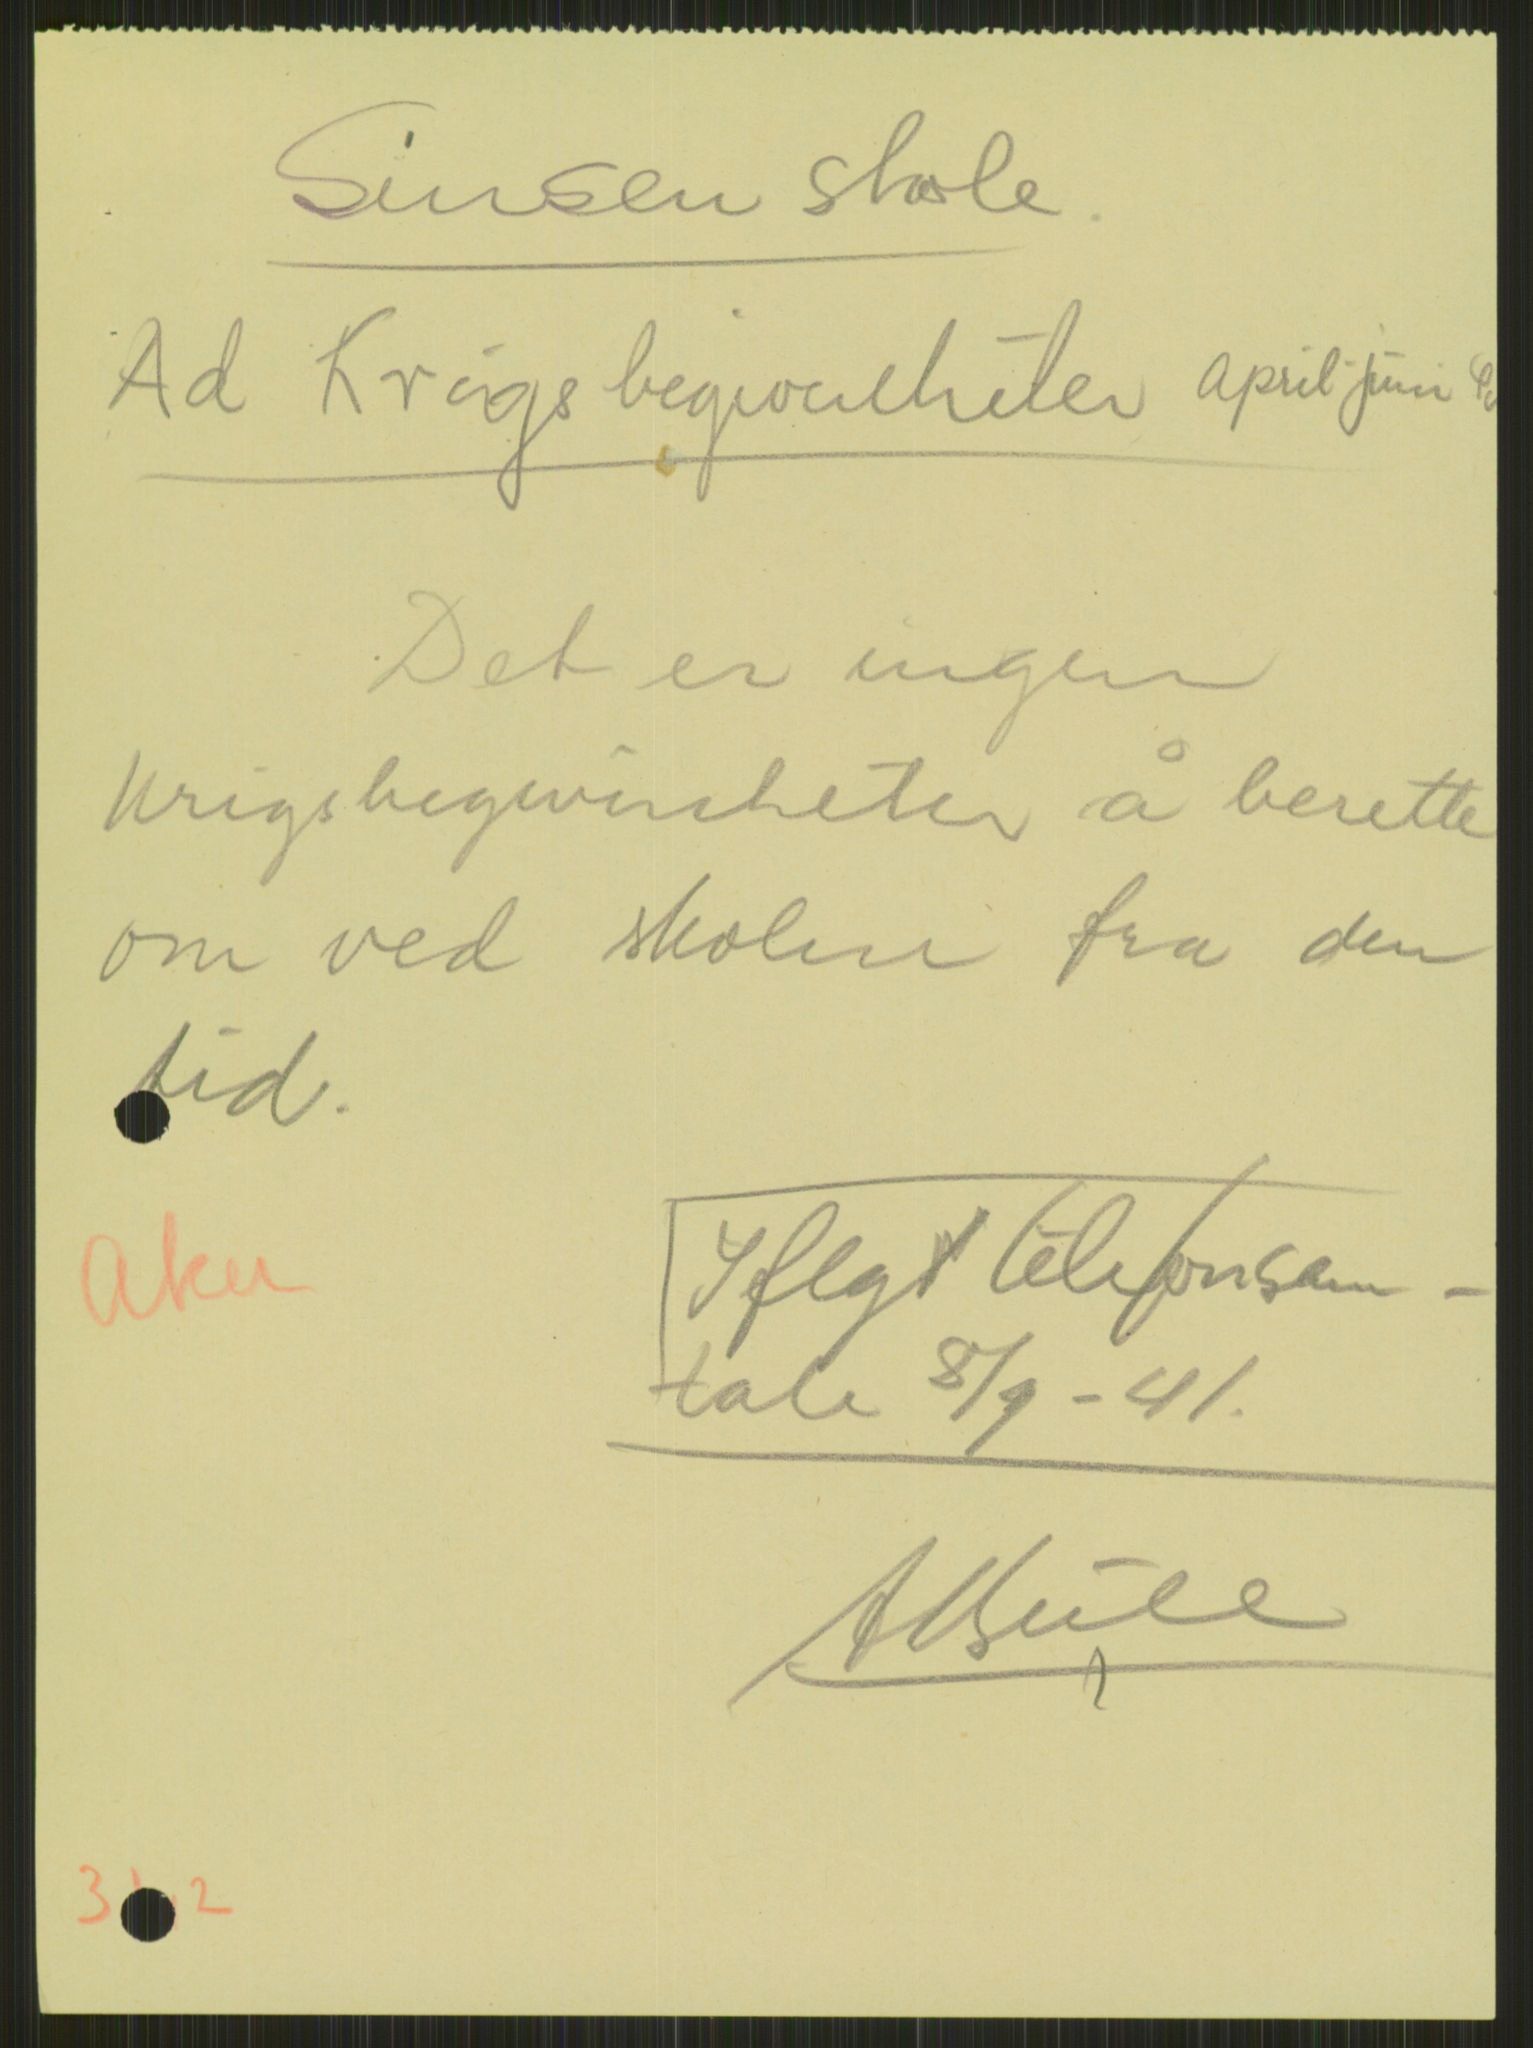 Sinsen skole.
Ad Krigsbegivenheter April-juni
Det er ingen
krigsbegivenheter å berette
om ved skolen fra den
tid.
Aker
Iflgt telefonsam-
tale 8/9-41.